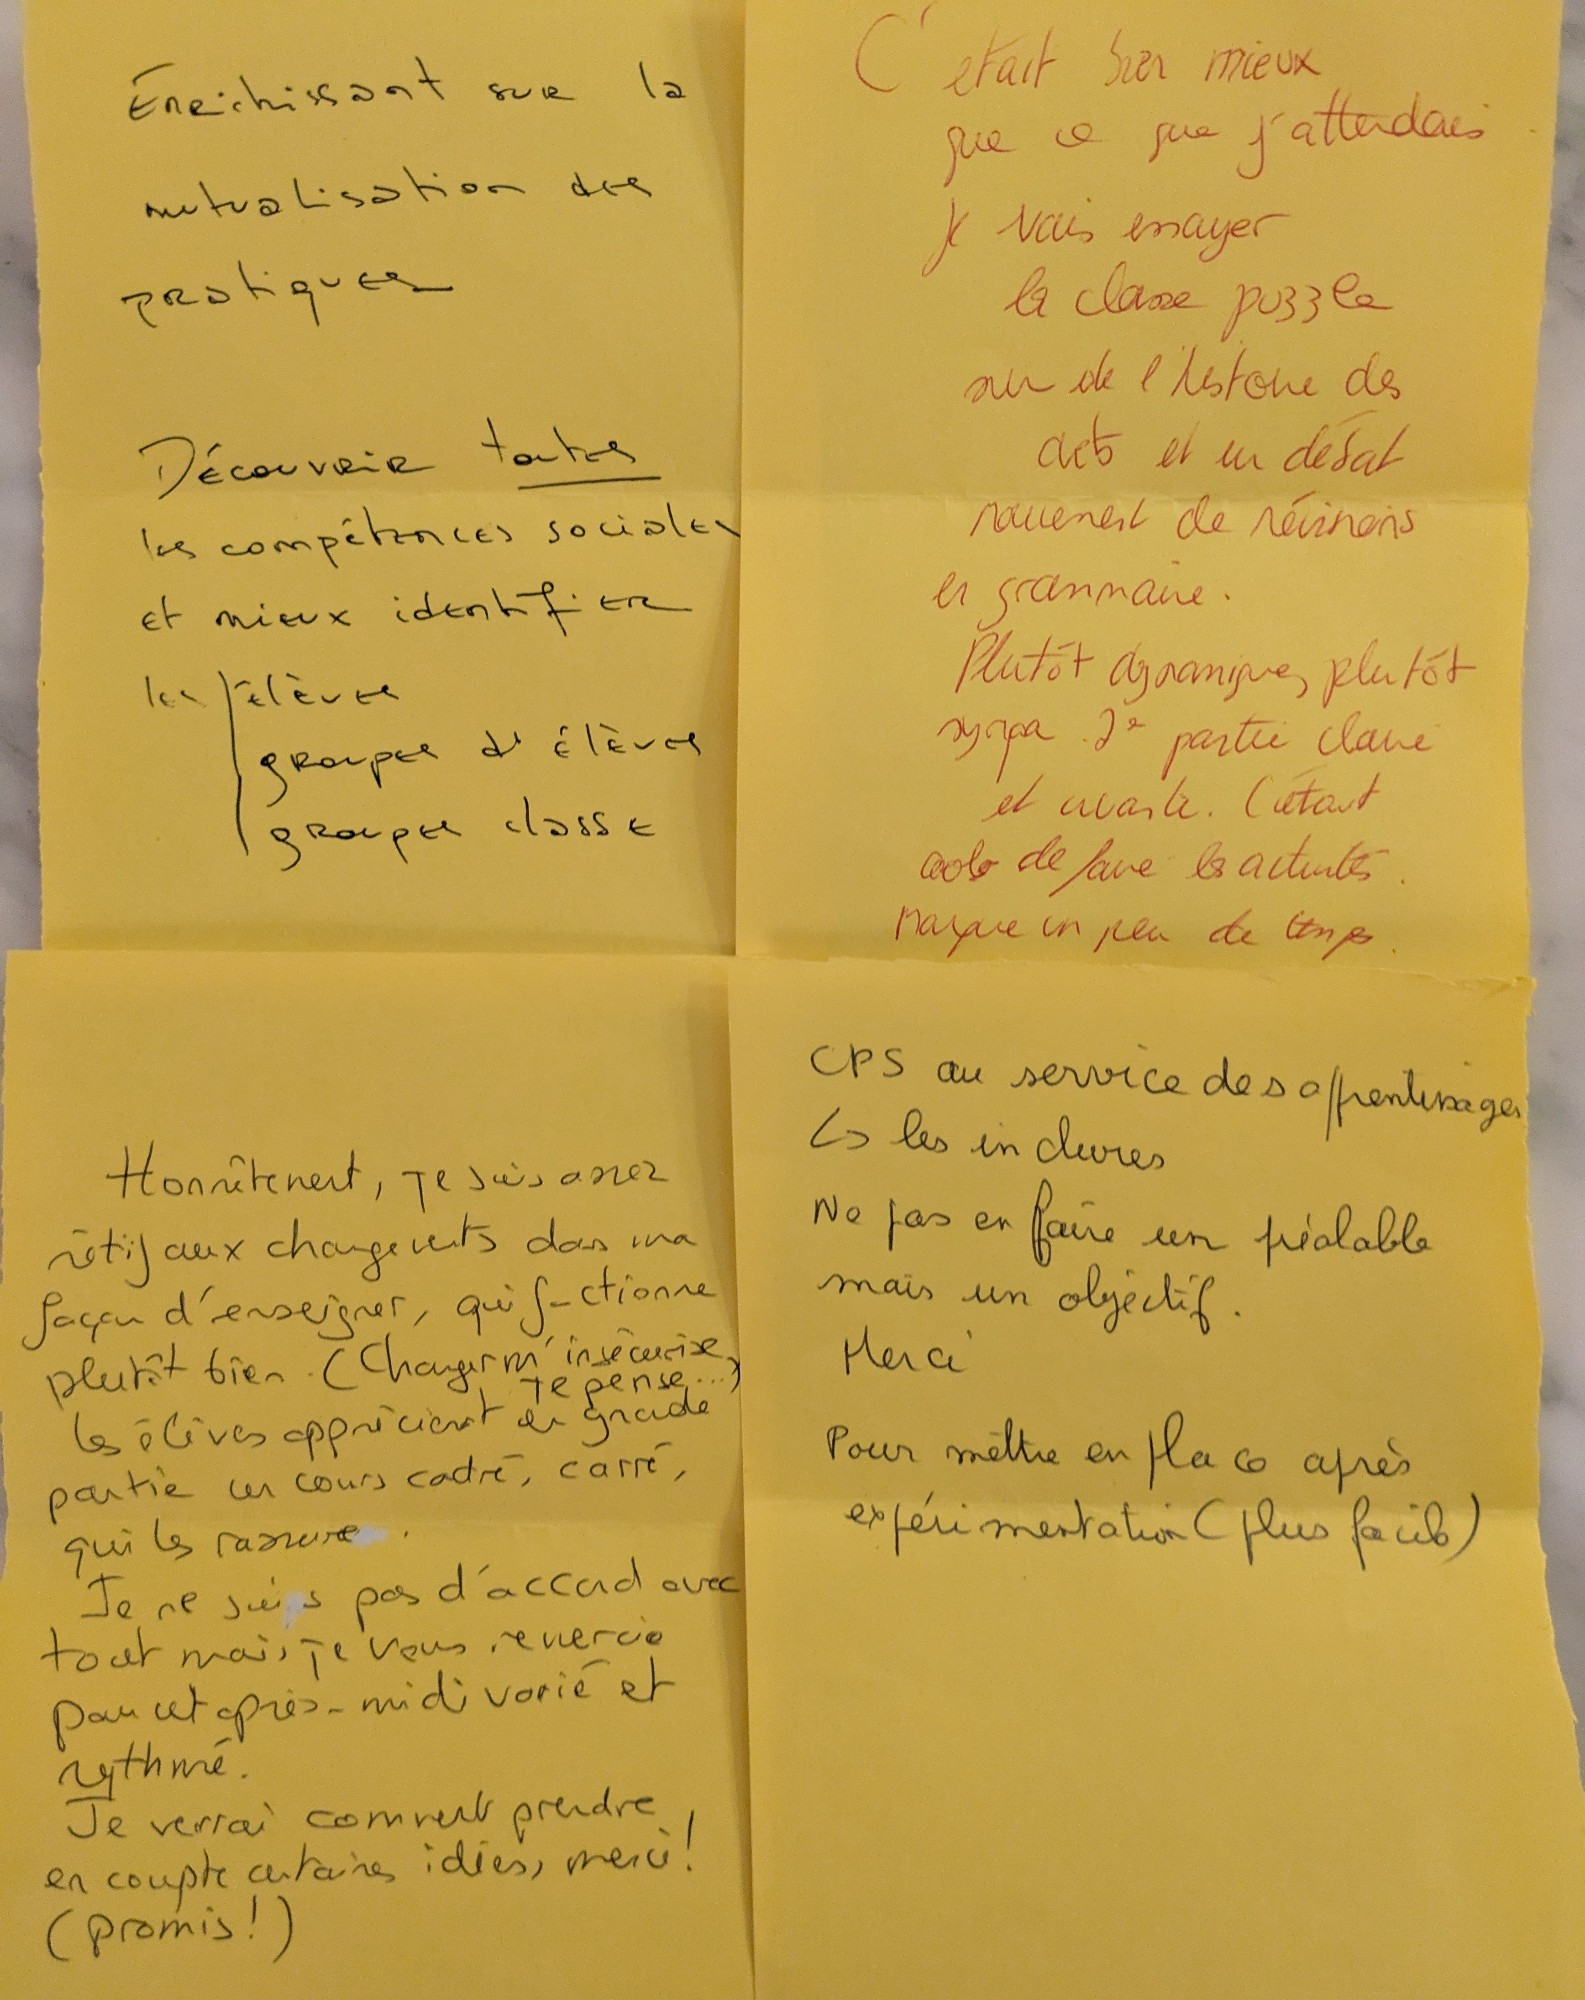 Enrichissant sur la
mutualisation des
pratiques
Découvrir toutes
les compétences sociales
et mieux identifier
les élèves
groupes d'élèves
groupes classe
C'était bien mieux
que ce que j'attendais
je vais essayer
la classe puzzle
sur de l'histoire des
arts et un débat
mouvement de révisions
en grammaire.
Plutôt dynamique, plutôt
sympa. 2e partie claire
et vivante. C'était
cool de faire les activités.
Manque un peu de temps.
Honnêtement, je suis assez
rétif aux changements dans ma
façon d'enseigner, qui fonctionne
plutôt bien. (Changer m'insécurise,
je pense...)
Les élèves apprécient en grande
partie un cours cadré, carré,
qui les rassure.
Je ne suis pas d'accord avec
tout mais je vous remercie
pour cet après-midi varié et
rythmé.
Je verrai comment prendre
en compte certaines idées, merci!
(promis!)
CPS au service des apprentissages
↳ les inclures
Ne pas en faire un préalable
mais un objectif.
Merci
Pour mettre en place après
expérimentation (plus facile)